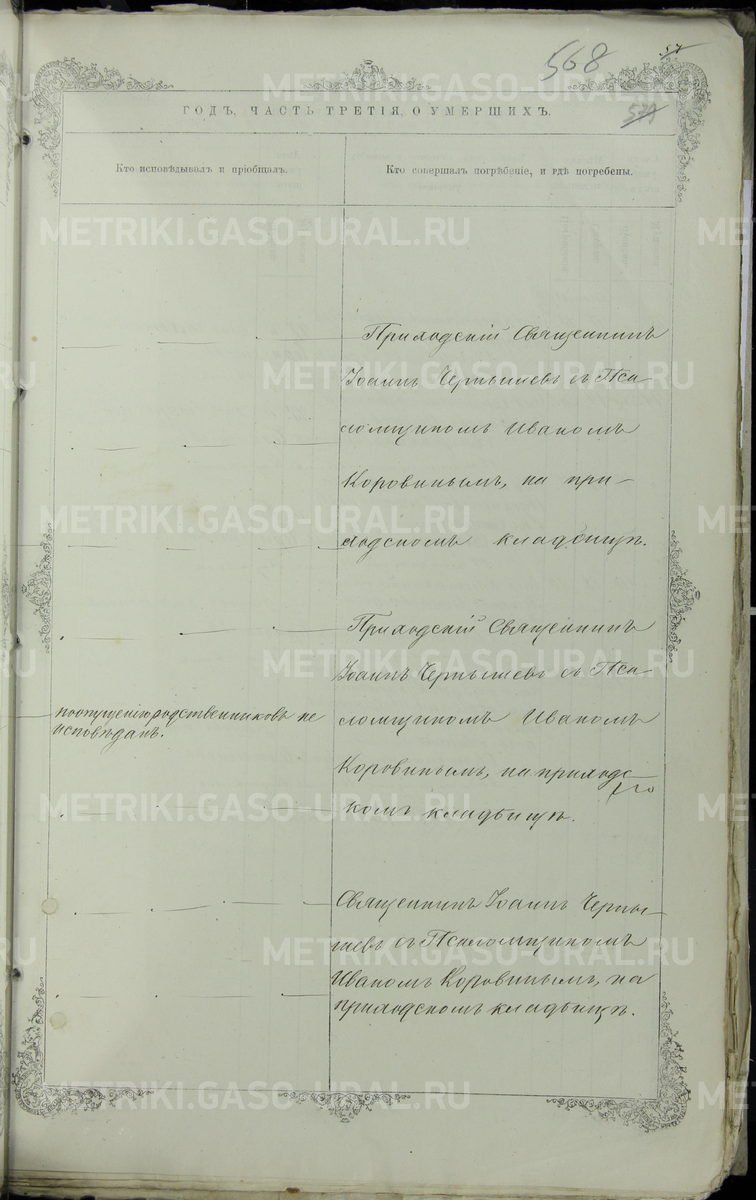 568
57
571
ГОДЪ, ЧАСТЬ ТРЕТІЯ, О УМЕРШИХЪ.
Кто исповѣдывалъ и пріобщалъ.
Кто совершалъ погребеніе, и гдѣ погребены.
Приходскій Священникъ
Іоаннъ Чернышевъ съ Пса
ломщикомъ Иваномъ
Коровинымъ, на при-
ходскомъ кладбищѣ.
Приходскій Священникъ
Іоаннъ Чернышевъ съ Пса
поопущенію родственниковъ не
исповѣданъ.
ломщикомъ Иваномъ
Коровинымъ, на приходс-
комъ кладбищѣ.
Священникъ Іоаннъ Черны-
шевъ съ Псаломщикомъ
Иваномъ Коровинымъ, на
приходскомъ кладбищѣ.
METRIKI.GASO-URAL.RU